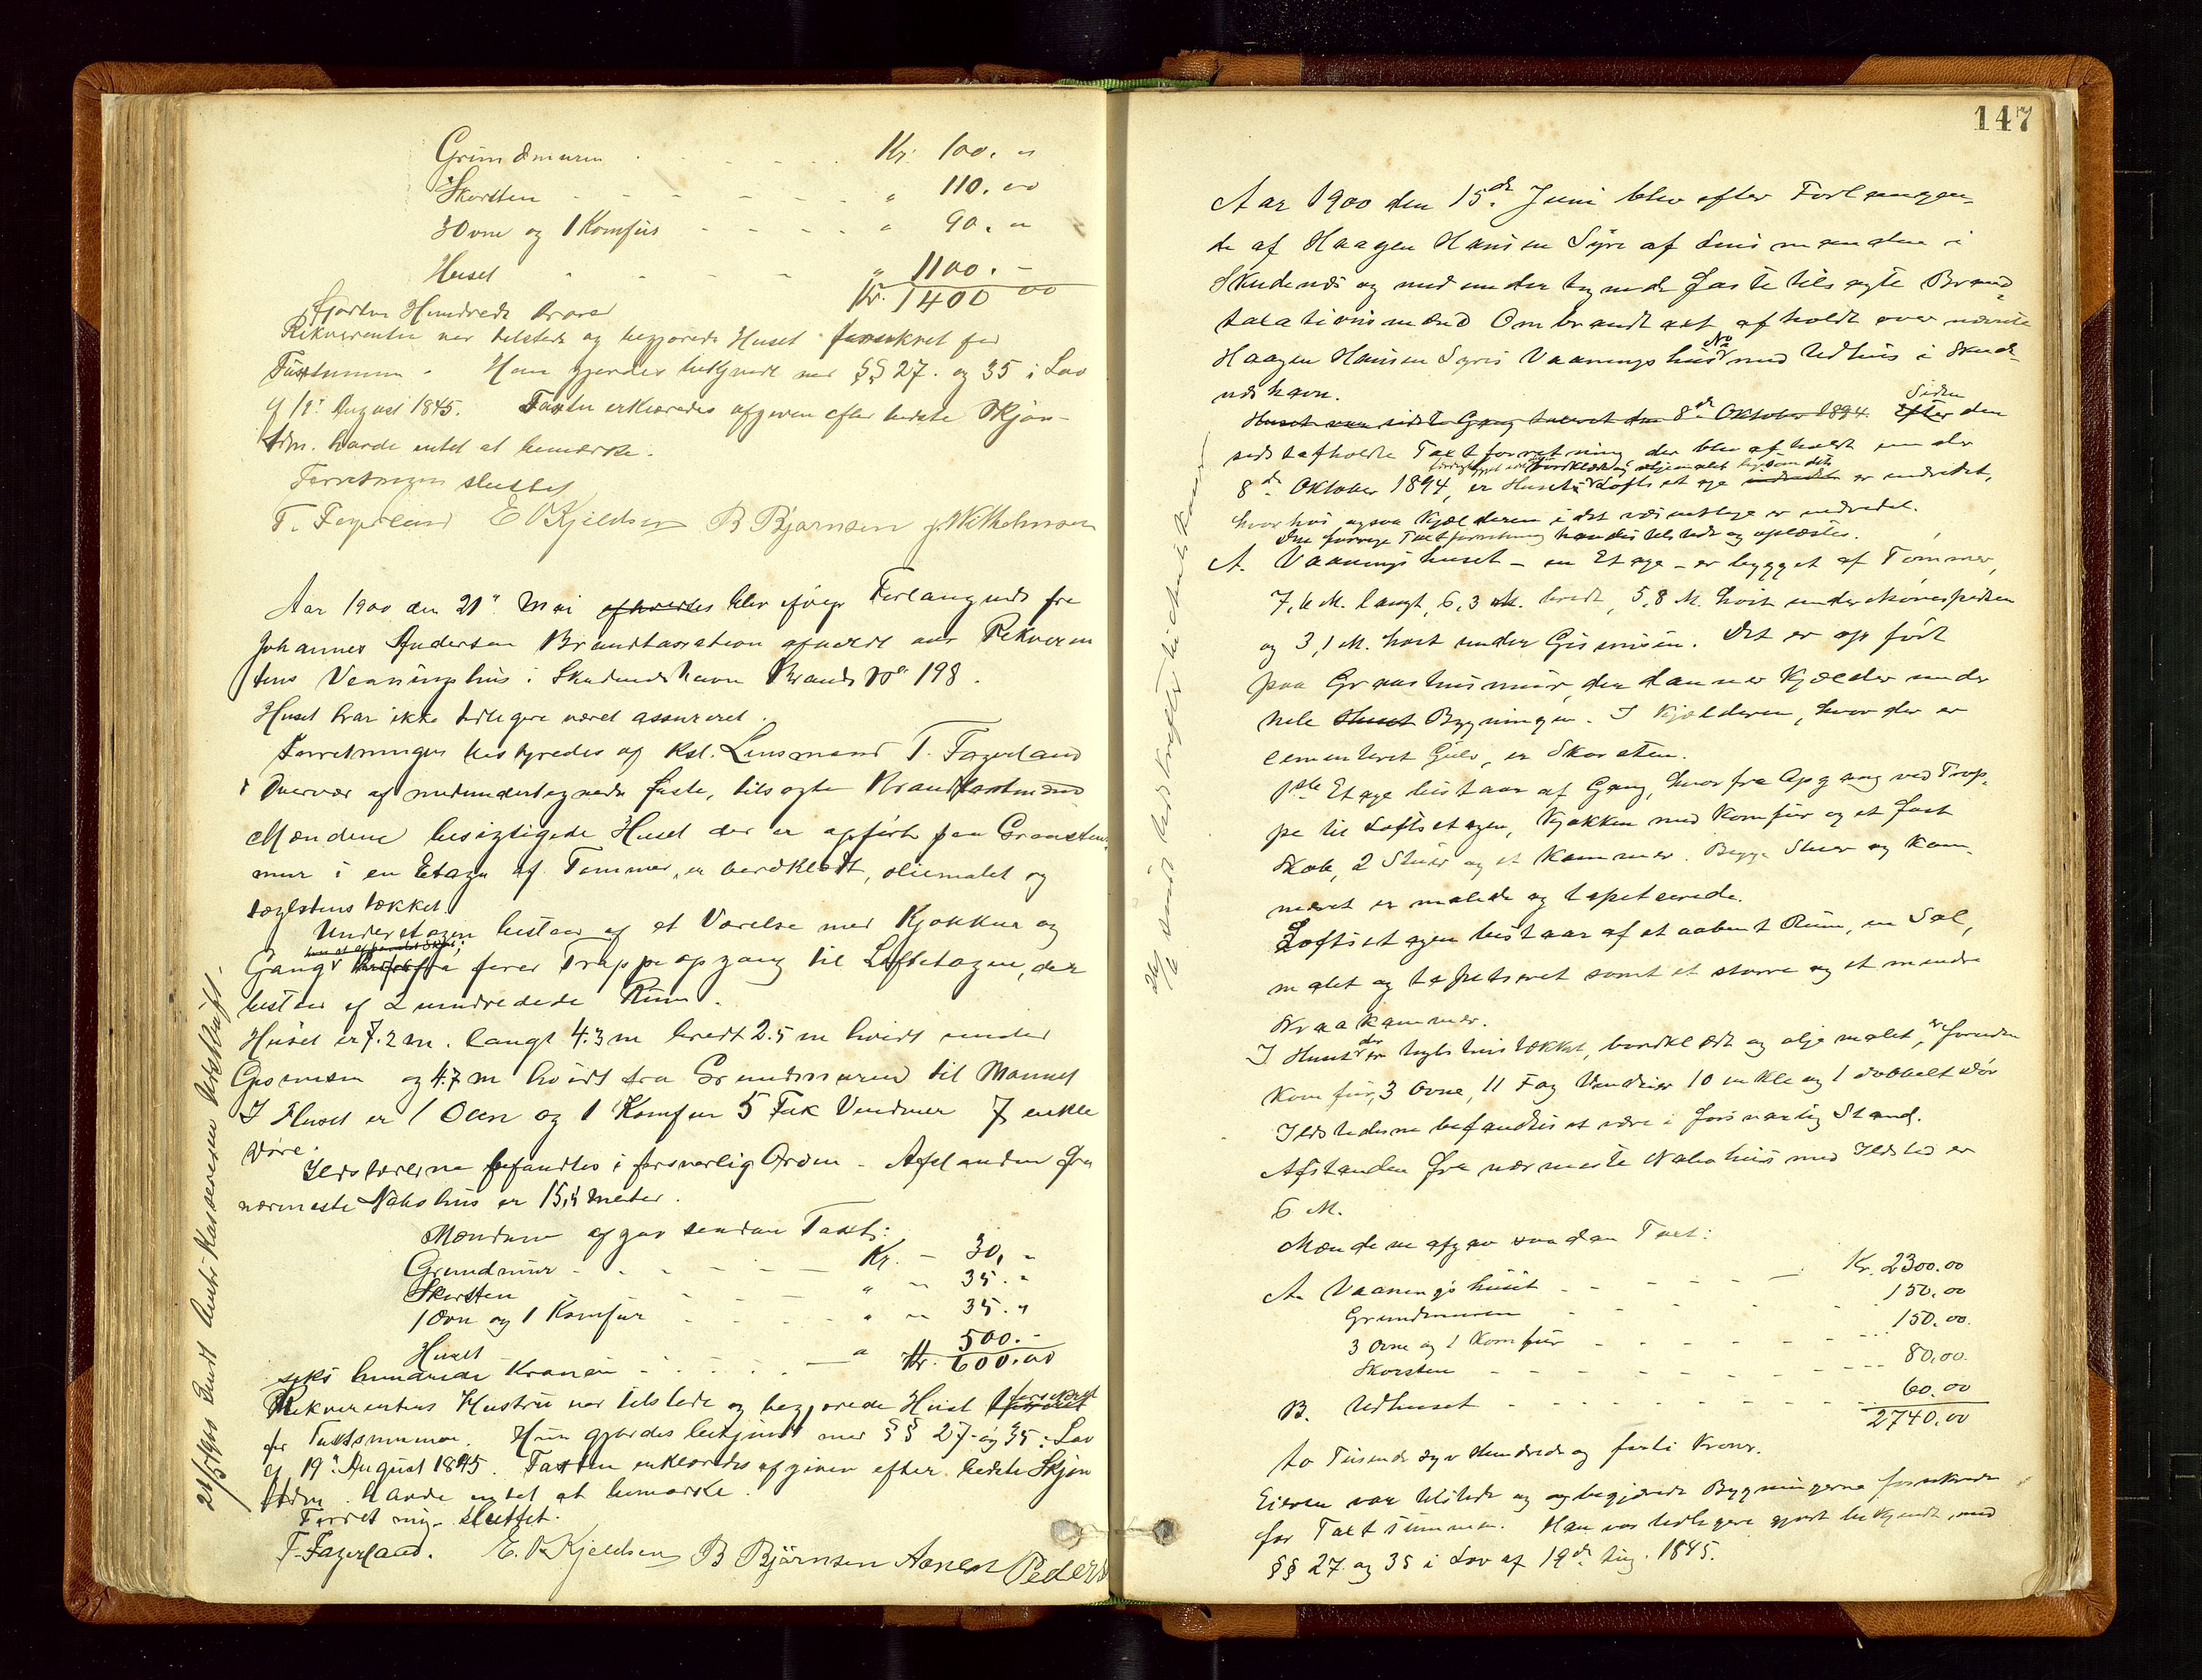 Grundmuren . . . . . . Kr. 100. "
Skorsten - - - - - - " 110.00
3 Ovne og 1 Komfur - - - - - " 90. "
Huset - - - - " 1100. -
Kr. 1400 00
fjorten Hundrede Kroner
Rekvirenten var tilstede og begjærede Huset forsikret for
Taxtsummen. Han gjordes bekjendt med §§ 27. og 35 i Lov
af 19. August 1845. Taxten erklæredes afgiven efter bedste Skjøn -
Ldm. havde intet at bemærke.
Forretningen sluttet
T. Fagerland E O Kjeldsen B Bjørnsen J. Vilhelmsen
Aar 1900 den 21. Mai afholdtes blev ifølge Forlangende fra
Johannes Andersen Brandtaxation afholdt over Rekviren
tens Vaaningshus i Skudeneshavn Brand No 198.
Huset har ikke tidligere været assureret.
Forretningen bestyredes af Kst. Lensmand T. Fagerland
i Overvær af medundertegnede faste, tilsagte Brandtaxtmænd
Mændene besigtigede Huset der er opført paa Graasten-
mur i en Etage af Tømmer, er bordklædt, oliemalet og
taglstens tækket.
Underetagen bestaar af et Værelse med Kjøkken og
Gang hvorfra fører Trappeopgang til Loftetagen, der
bestaar af 2 uindredede Rum.
Huset er 7.2 m. langt 4.3 m bredt 2.5 m høidt under
Gesimsen og 4.7 m høidt fra Grundmuren til Mønnet
I Huset er 1 Ovn og 1 Komfur 5 Fak Vinduer 7 enkle
Døre.
Ildstederne befandtes i forsvarlig Orden. Afstanden fra
nærmeste Nabohus er 15,5 Meter.
Mændene afgav saadan Taxt:
Grundmur - - - - - Kr. - 30, "
Skorsten - - - - " - 35. "
1 Ovn og 1 Komfur - - - - " - 35. "
Huset " 500. -
seks hundrede Kroner - - - - - Kr. 600.00
Rekvirentens Hustru var tilstede og begjærede Huset forsikret
for Taxtsummen. Hun gjordes bekjendt med §§ 27. og 35 i Lov
af 19. August 1845. Taxten erklæredes afgiven efter bedste Skjøn
Ldm. havde intet at bemærke.
Forretning sluttet.
T. Fagerland. E. O Kjeldsen B Bjørnsen Peders
147
Aar 1900 den 15de Juni blev efter Forlangen-
de af Haagen Hansen Syre af Lensmanden i
Skudenes og medundertegnede faste tilsagte Brand-
taxationsmænd Ombrandtaxt afholdt over nævnte
Haagen Hansen Syres Vaaningshus No med Udhus i Skude-
neshavn.
Huset var sidste Gang taxeret den 8de Oktober 1894. Efter Siden den
sidst afholdte Taxtforretning, der blev afholdt under
8de Oktober 1894, er Husets Loftsetage er indredet,
hvorhos ogsaa Kjælderen i det væsentlige er indredet.
Den forrige Taxtforretning havdes tilstede og oplæstes.
A. Vaaningshuset - en Etage - er bygget af Tømmer,
7,6 M. langt, 6,3 M. bredt, 5,8 M. høit under Mønespidsen
og 3,1 M. høit under Gesimsen. Det er opført
paa Graastensmur, der danner Kjælder under
hele Huset Bygningen. I Kjælderen, hvor der er
cementeret Gulv, er Skorsten.
1ste Etage bestaar af Gang, hvorfra Opgang ved Trap-
pe til Loftsetagen, Kjøkken med Komfur og et fast
Skab, 2 Stuer og et Kammer. Begge Stuer og Kam-
meret er malede og tapetserede.
Loftsetagen bestaar af et aabent Rum, en Sal,
malet og tapetseret samt et større og et mindre
Kraakammer.
I Huset, der er taglstenstækket, bordklædt og oljemalet, er foruden
Komfur, 3 Ovne, 11 Fag Vinduer 10 enkle og 1 dobbelt Dør
Ildstederne befandtes at være i forsvarlig Stand.
Afstanden fra nærmeste Nabohus med Ildsted er
6 M.
Mændene afgav saadan Taxt:
A. Vaaningshuset - - - - - Kr. 2300.00
Grundmuren - - - - - 150.00
3 Ovne og 1 Komfur - - - - - 150.00.
Skorsten - - - - - - 80.00.
B. Udhuset - - - - - - 60.00
2740.00
to Tusende syv Hundrede og førti Kroner.
Eieren var tilstede og begjærede Bygningerne forsikrede
for Taxtsummen. Han var tidligere gjort bekjendt med
§§ 27 og 35 i Lov af 19de Aug. 1845.